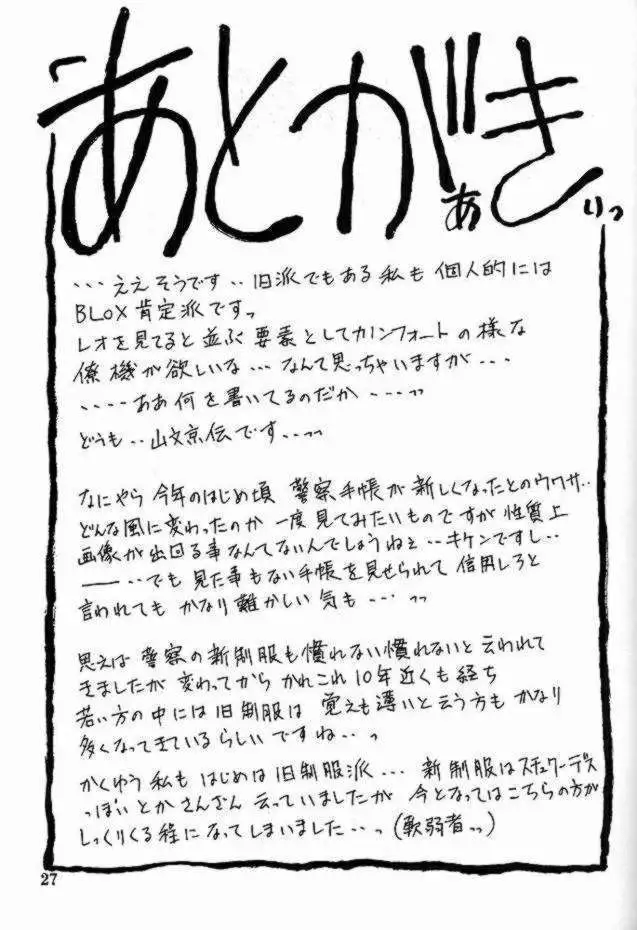 あとがき
ぁ りっ
…ええそうです‥旧派でもある私も個人的には
BLOX肯定派ですっ
レオを見てると並ぶ要素としてカノンフォートの様な
僚機が欲しいな…なんて思っちゃいますが…
‥‥ああ何を書いてるのだか‥‥っっ
どうも‥山文京伝です‥っっ
なにやら今年のはじめ頃 警察手帳が新しくなったとのウワサ‥
どんな風に変わったのか一度見てみたいものですが性質上
画像が出回る事なんてないんでしょうねェ‥キケンですし‥
――‥でも見た事もない手帳を見せられて信用しろと
言われてもかなり難かしい気も…っっ
思えば警察の新制服も慣れない慣れないと云われて
きましたが変わってからかれこれ10年近くも経ち
若い方の中には旧制服は覚えも薄いと云う方もかなり
多くなってきているらしいですね‥っ
かくゆう私もはじめは旧制服派…新制服はスチュワーデス
っぽいとかさんざん云っていましたが今となってはこちらの方が
しっくりくる程になってしまいました‥っ(軟弱者っっ)
27